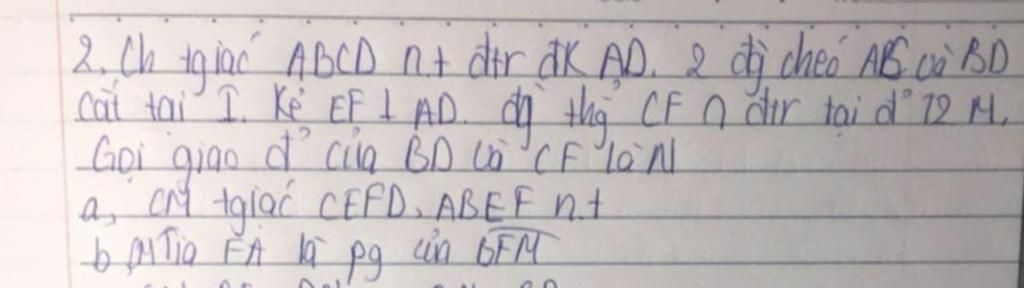 2, Ch tgiác ABCD n.t đtr đK AD. 2 đg chéo AC và BD
cắt tại I. Kẻ EF ⊥ AD. đg thg CF ∩ đtr tại đ' T2 M.
Gọi giao đ' của BD và CF là N
a, CM tgiác CEFD, ABEF n.t
b, CM Tia FA là pg của BFM